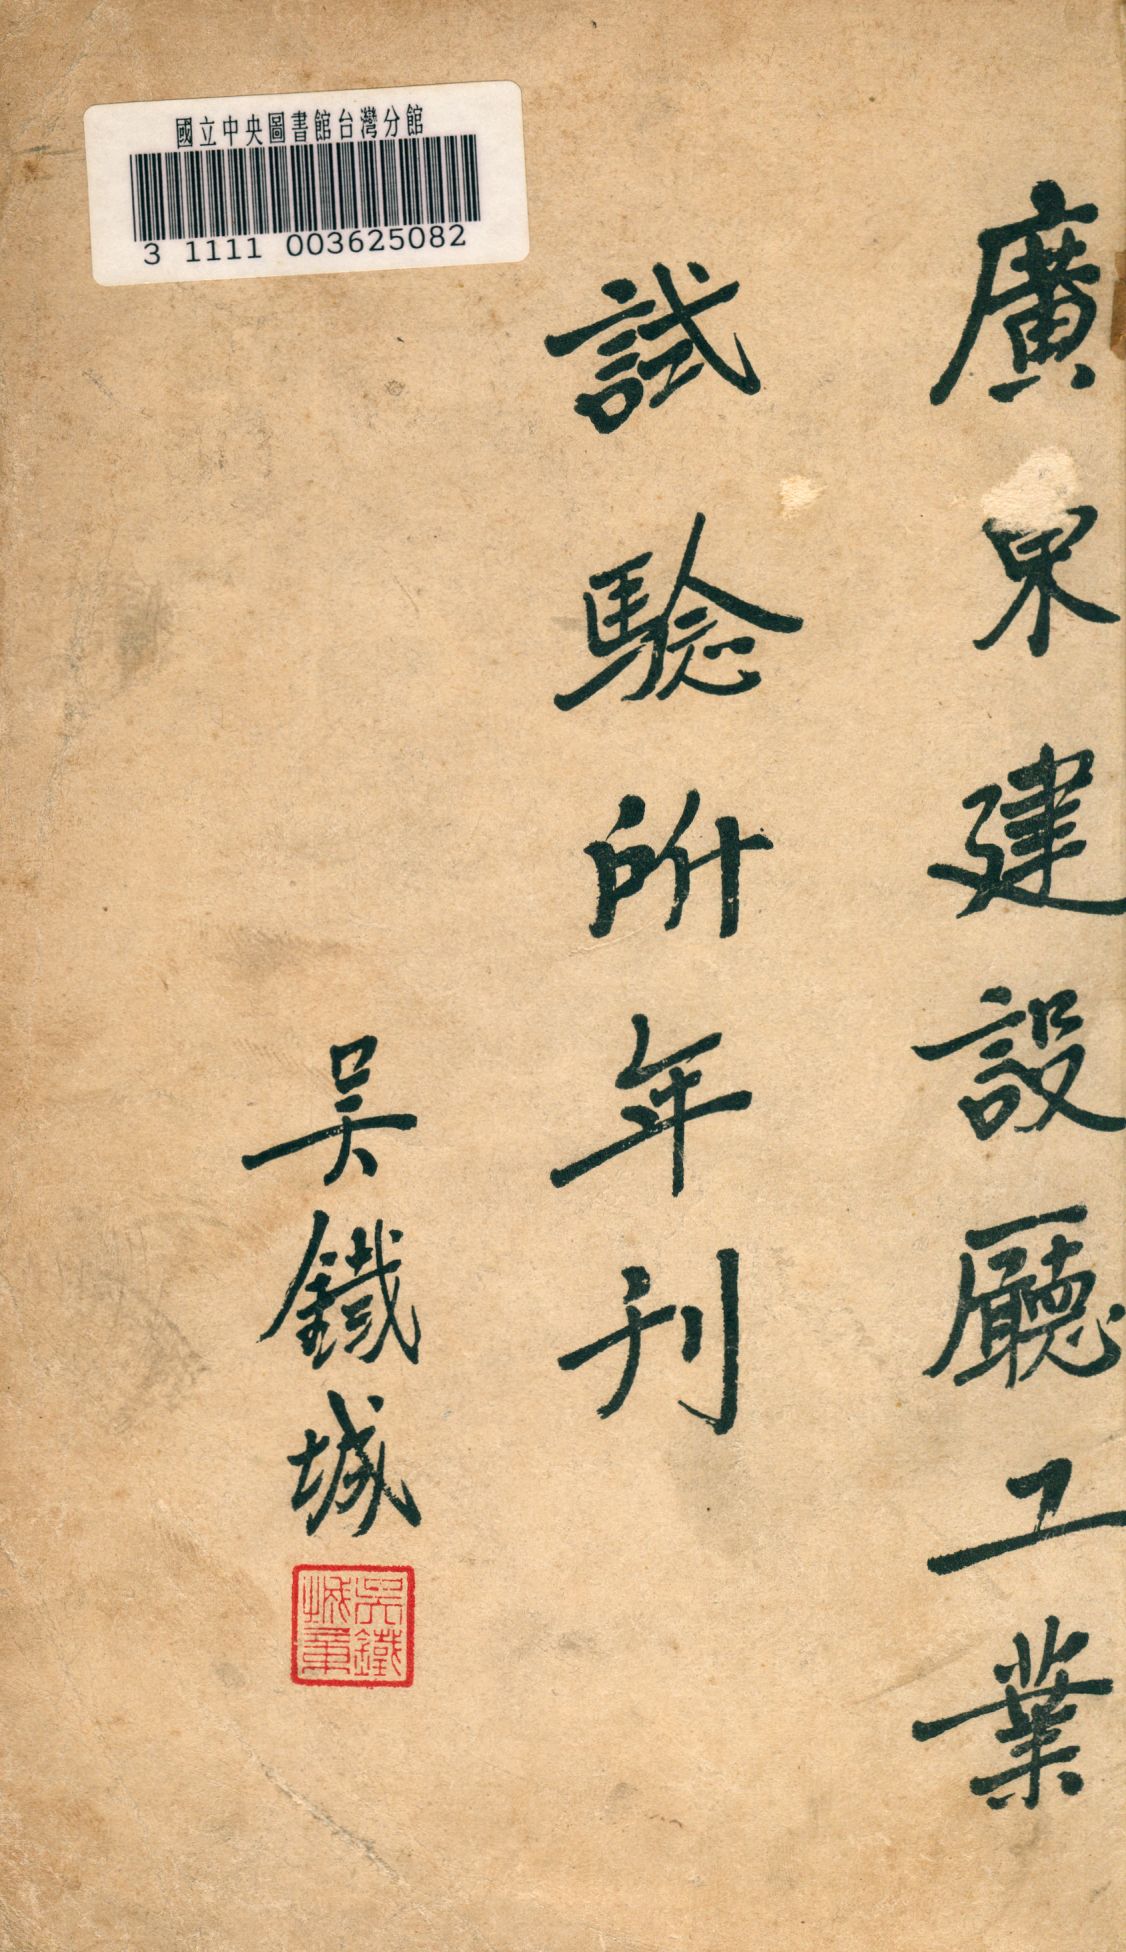 廣東建設廳工業
試驗所年刊
吳鐵城
吳鐵城章
國立中央圖書館台灣分館
3 1111 003625082